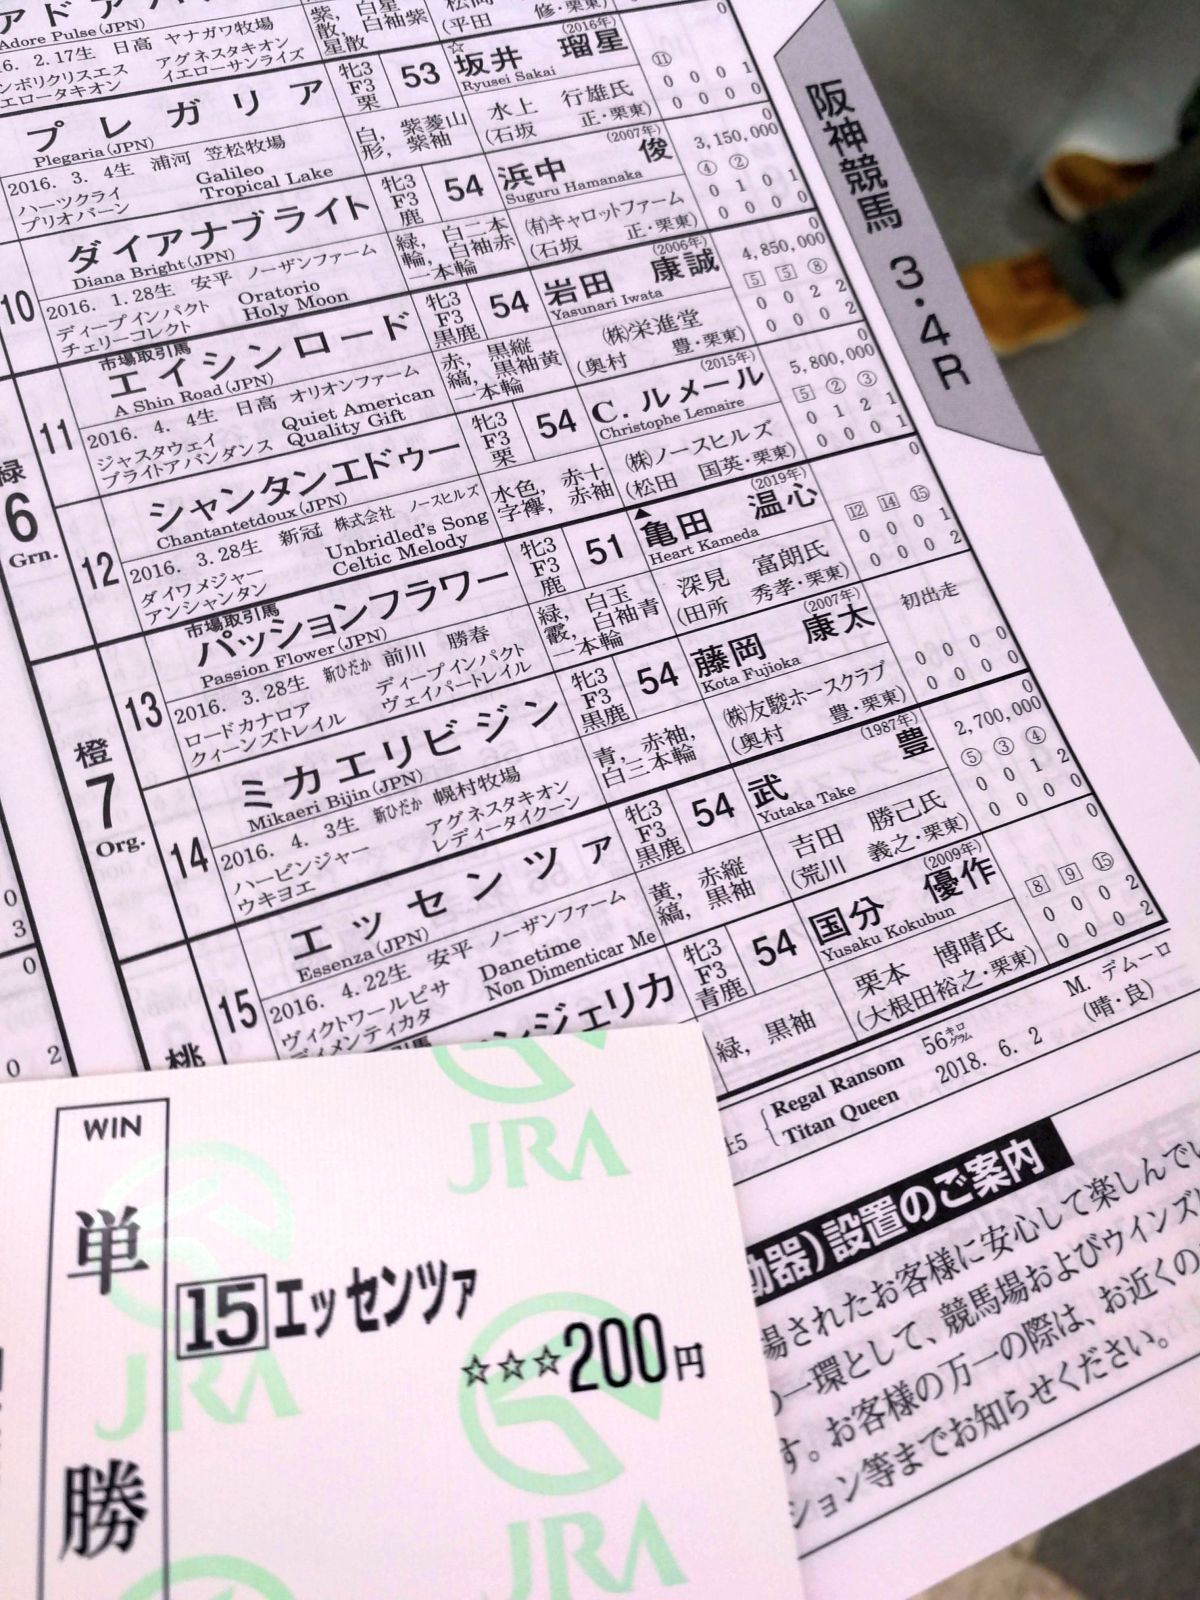 Adore Pulse(JPN)
2.17生 日高 ヤナガワ牧場
アグネスタキオン
イエロータキオン
イエローサンライズ
紫, 白星
散, 白袖紫
星散
(平田 修・栗東)
0
プレガリア
Plegaria(JPN)
牝3
F3
栗
53
☆坂井 瑠星
(2016年)
Ryusei Sakai
⑪
0 0 0 1
0 0 0 0
2016. 3. 4生 浦河 笠松牧場
ハーツクライ Galileo
プリオバーン Tropical Lake
白, 紫菱山
形, 紫袖
水上 行雄氏
(石坂 正・栗東)
0
10
ダイアナブライト
Diana Bright(JPN)
牝3
F3
鹿
54
浜中 俊
(2007年)
Suguru Hamanaka
3,150,000
④ ②
0 1 0 1
0 0 0 0
2016. 1.28生 安平 ノーザンファーム
ディープインパクト Oratorio
チェリーコレクト Holy Moon
緑, 白二本
輪, 白袖赤
一本輪
(有)キャロットファーム
(石坂 正・栗東)
0
緑
6
Grn.
11
市場取引馬
エイシンロード
A Shin Road(JPN)
牝3
F3
黒鹿
54
岩田 康誠
(2006年)
Yasunari Iwata
4,850,000
5 5 ⑧
0 0 2 2
0 0 0 2
2016. 4. 4生 日高 オリオンファーム
ジャスタウェイ Quiet American
ブライトアバンダンス Quality Gift
赤, 黒縦
縞, 黒袖黄
一本輪
(株)栄進堂
(奥村 豊・栗東)
0
12
シャンタンエドゥー
Chantantetdoux(JPN)
牝3
F3
栗
54
C. ルメール
(2015年)
Christophe Lemaire
5,800,000
5 ② ③
0 1 2 1
0 0 0 1
2016. 3.28生 新冠 株式会社 ノースヒルズ
ダイワメジャー Unbridled's Song
アンシャンタン Celtic Melody
水色, 赤十
字襷, 赤袖
(株)ノースヒルズ
(松田 国英・栗東)
0
橙
7
Org.
13
市場取引馬
パッションフラワー
Passion Flower(JPN)
牝3
F3
鹿
51
▲亀田 温心
(2019年)
Heart Kameda
12 14 ⑮
0 0 0 1
0 0 0 2
2016. 3.28生 新ひだか 前川 勝春
ロードカナロア ディープインパクト
クィーンズトレイル ヴェイパートレイル
緑, 白玉
霰, 白袖青
一本輪
深見 富朗氏
(田所 秀孝・栗東)
14
ミカエリビジン
Mikaeri Bijin(JPN)
牝3
F3
黒鹿
54
藤岡 康太
(2007年)
Kota Fujioka
初出走
0 0 0 0
0 0 0 0
2016. 4. 3生 新ひだか 幌村牧場
ハービンジャー アグネスタキオン
ウキヨエ レディータイクーン
青, 赤袖,
白三本輪
(株)友駿ホースクラブ
(奥村 豊・栗東)
0
桃
15
エッセンツァ
Essenza(JPN)
牝3
F3
黒鹿
54
武 豊
(1987年)
Yutaka Take
2,700,000
⑤ ③ ④
0 0 1 2
0 0 0 0
2016. 4.22生 安平 ノーザンファーム
ヴィクトワールピサ Danetime
ディメンティカタ Non Dimenticar Me
黄, 赤縦
縞, 黒袖
吉田 勝己氏
(荒川 義之・栗東)
0
ンジェリカ
牝3
F3
青鹿
54
国分 優作
(2009年)
Yusaku Kokubun
8 9 ⑮
0 0 0 2
0 0 0 2
緑, 黒袖
栗本 博晴氏
(大根田裕之・栗東)
Regal Ransom
Titan Queen
56キログラム
M. デムーロ
2018. 6. 2
(晴・良)
阪神競馬 3・4R
動器)設置のご案内
場されたお客様に安心して楽しんでい
の一環として、競馬場およびウインズ
す。お客様の万一の際は、お近くの
ション等までお知らせください。
WIN
単勝
15 エッセンツァ
☆☆☆200円
JRA
JRA
JRA